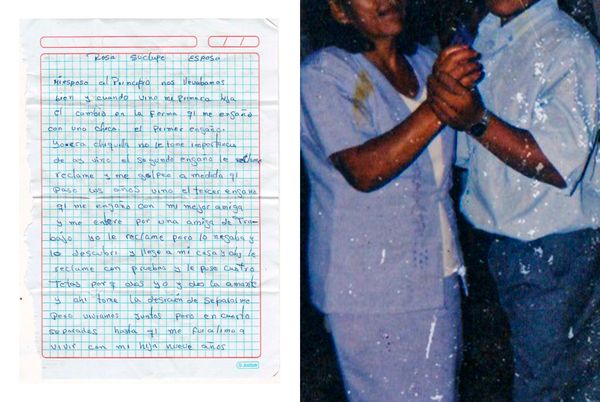 Rosa Suclupe Esposa
Miesposo al Principio nos llevabamos
bien y cuando vino mi Primera hija
El cambio en la forma q1 me engaño
con una chica. el Primer engaño.
Yo era chiquilla no le tome importancia
de ay vino el segundo engaño le
reclame y me golpeo a medida q1
Paso los años vino el tercer engaño
q1 me engaño con mi mejor amiga
y me entere por una amiga de Tra-
bajo yo le reclame pero lo negaba y
lo descubri y llego a mi casa y ay le
reclame con pruebas y le puse Cuatro
Tetas por q avas yo y dua la amante
y ahi tome la desición de separarme
Pero viviamos Juntos pero en cuarto
separados hasta q1 me fui a lima a
vivir con mi hija nueve años